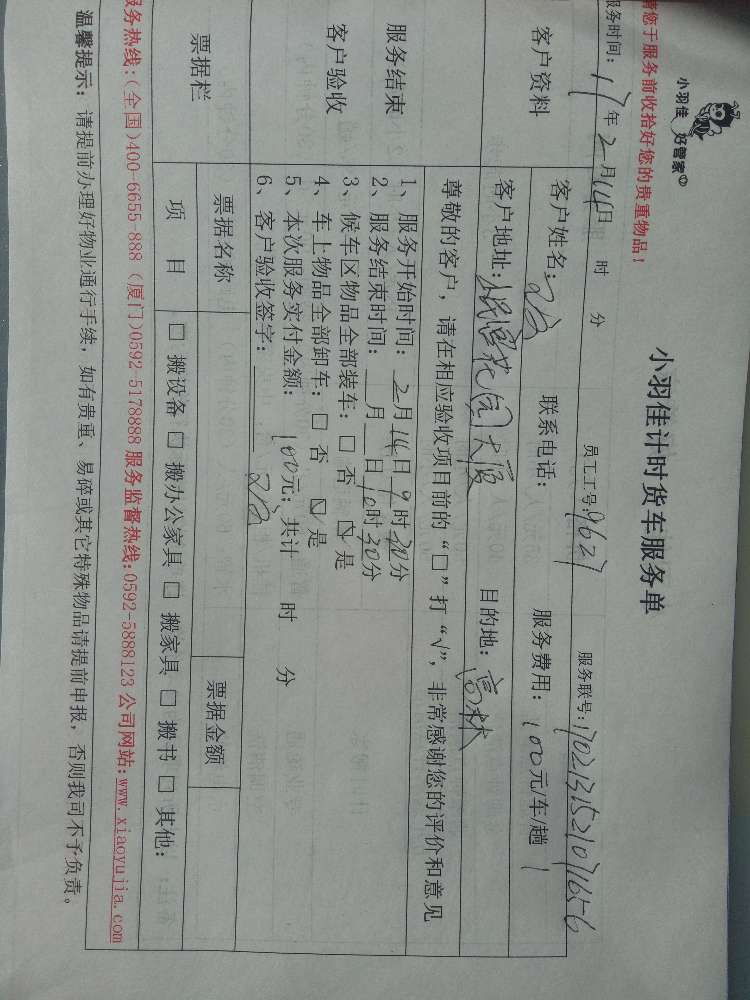 小羽佳 好管家
请您于服务前收拾好您的贵重物品！
小羽佳计时货车服务单
服务时间：17年2月14日 时 分 员工工号：9627 服务联号：1702131521071656
客户资料
客户姓名： 联系电话： 服务费用：100元/车/趟
客户地址：花园大厦 目的地：高林
服务结束
客户验收
尊敬的客户，请在相应验收项目前的“□”打“√”，非常感谢您的评价和意见
1、服务开始时间：2月14日9时20分
2、服务结束时间：__月__日10时30分
3、候车区物品全部装车：□ 否 ☑ 是
4、车上物品全部卸车：□ 否 ☑ 是
5、本次服务实付金额：100元；共计 时 分
6、客户验收签字：
票据栏 票据名称 票据金额
项 目 □ 搬设备 □ 搬办公家具 □ 搬家具 □ 搬书 □ 其他：
服务热线：（全国）400-6655-888（厦门）0592-5178888 服务监督热线：0592-5888123 公司网站：www.xiaoyujia.com
温馨提示：请提前办理好物业通行手续，如有贵重、易碎或其它特殊物品请提前申报，否则我司不予负责。